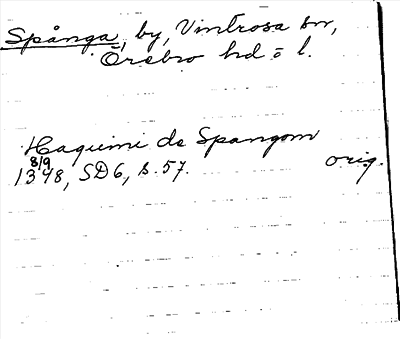 Spånga, by, Vintrosa sn,
Örebro hd o l.
Haquini de Spangom
orig.
8/9
1348, SD6, s. 57.